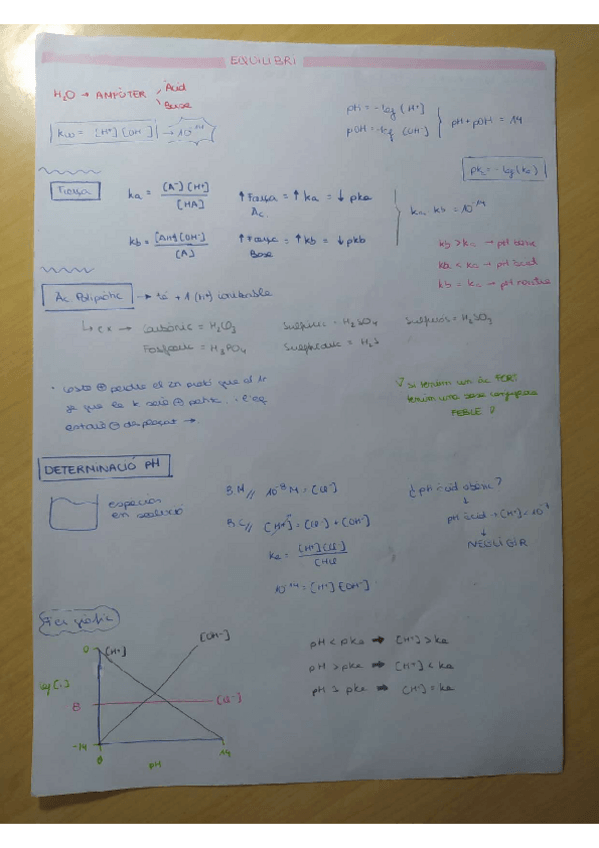 EQUILIBRI
H₂O → AMFÒTER
Àcid
Base
kw = [H+] [OH-] → 10⁻¹⁴
pH = -log [H+]
pOH = -log [OH-]
pH + pOH = 14
pka = -log(ka)
Força
ka = [A-] [H+] / [HA]
↑ Força Ac. = ↑ ka = ↓ pka
kb = [AH] [OH-] / [A]
↑ Força Base = ↑ kb = ↓ pkb
ka · kb = 10⁻¹⁴
kb > ka → pH bàsic
kb < ka → pH àcid
kb = ka → pH neutre
Àc Polipròtic → té + 1 (H+) ionitzable
↳ ex → Carbònic = H₂CO₃
Sulfúric = H₂SO₄
Sulfurós = H₂SO₃
Fosfòric = H₃PO₄
Sulfhídric = H₂S
costa ⊕ perdre el 2n protó que el 1r
ja que la k serà ⊕ petita
estarà ⊖ desplaçat →
si tenim un àc FORT
tenim una base conjugada
FEBLE
DETERMINACIÓ pH
espècies
en solució
BM// 10⁻⁸ M = [Cl-]
BC// [H+] = [Cl-] + [OH-]
ka = [H+] [Cl-] / [HCl]
10⁻¹⁴ = [H+] [OH-]
¿pH àcid o bàsic?
↓
pH àcid →
↓
NEGLIGIR
Fer gràfic
0
[H+]
[OH-]
log [ ]
8
[Cl-]
-14
0
pH
14
pH < pka → [H+] > ka
pH > pka → [H+] < ka
→ [H+] = ka